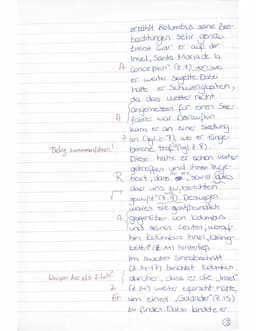 erzählt Kolumbus seine Beo-
bachtungen sehr genau.
Zuerst war er auf der
Insel „Santa Maria de la
A Concepion" (Z.1) von wo
er weiter segelte. Dabei
hatte er Schwierigkeiten,
da das Wetter nicht
angemessen für einen See-
A fahrer war. Daraufhin
kam er an einer Siedlung
Z an (vgl. Z.7), wo er einge-
Beleg zusammenführen! borene traf (vgl. Z.8).
Diese hatte er schon vorher
getroffen und ihnen zuge-
R hört, dass sie „soviel gutes
über uns zu berichten
gewußt" (Z.9). Deswegen
waren sie gastfreundlich
A gegenüber von Kolumbus
und seinen Leuten, worauf-
hin Kolumbus ihnen
(Z.11) hinterließ.
Im zweiten Sinnabschnitt
(Z.14-17) berichtet Kolumbus
Warum der als Zitat? darüber, dass er die „Insel"
Z (Z.14) weiter erforscht hätte,
Gr um eine „Goldader" (Z.15)
zu finden. Dabei landete er